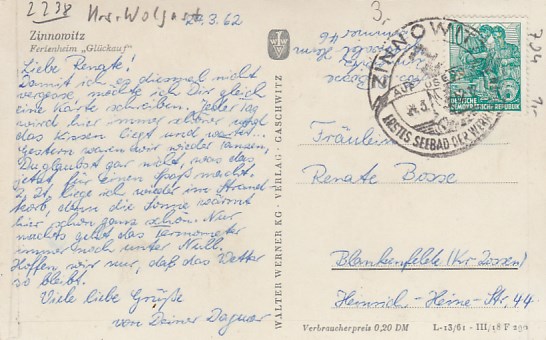 2238
Krs. Wolgast
24.3.62
Zinnowitz
Ferienheim „Glückauf"
Liebe Renate!
Damit ich es diesmal nicht
vergesse, möchte ich Dir gleich
eine Karte schreiben. Jeder Tag
wird hier immer schöner und
das Essen liegt und wartet...
Gestern waren wir wieder tanzen,
Du glaubst gar nicht, was das
jetzt für einen Spaß macht.
Z. Zt. liege ich wieder im Strand
korb, denn die Sonne wärmt
hier schon ganz schön. Nur
nachts geht das Termometer
immer noch unter Null.
Hoffen wir nur, daß das Wetter
so bleibt.
Viele liebe Grüße
von Deiner Dagmar
WALTER WERNER KG · VERLAG · GASCHWITZ
3.
ZINNOWITZ
AUF USEDOM
ERSTES SEEBAD DER WERKTÄTIGEN
DEUTSCHE
DEMOKRATISCHE REPUBLIK
Fräulein
Renate Bosse
Blankenfelde (Kr. Zossen)
Heinrich-Heine-Str. 44
Verbraucherpreis 0,20 DM
L-13/61 - III/18 F 290